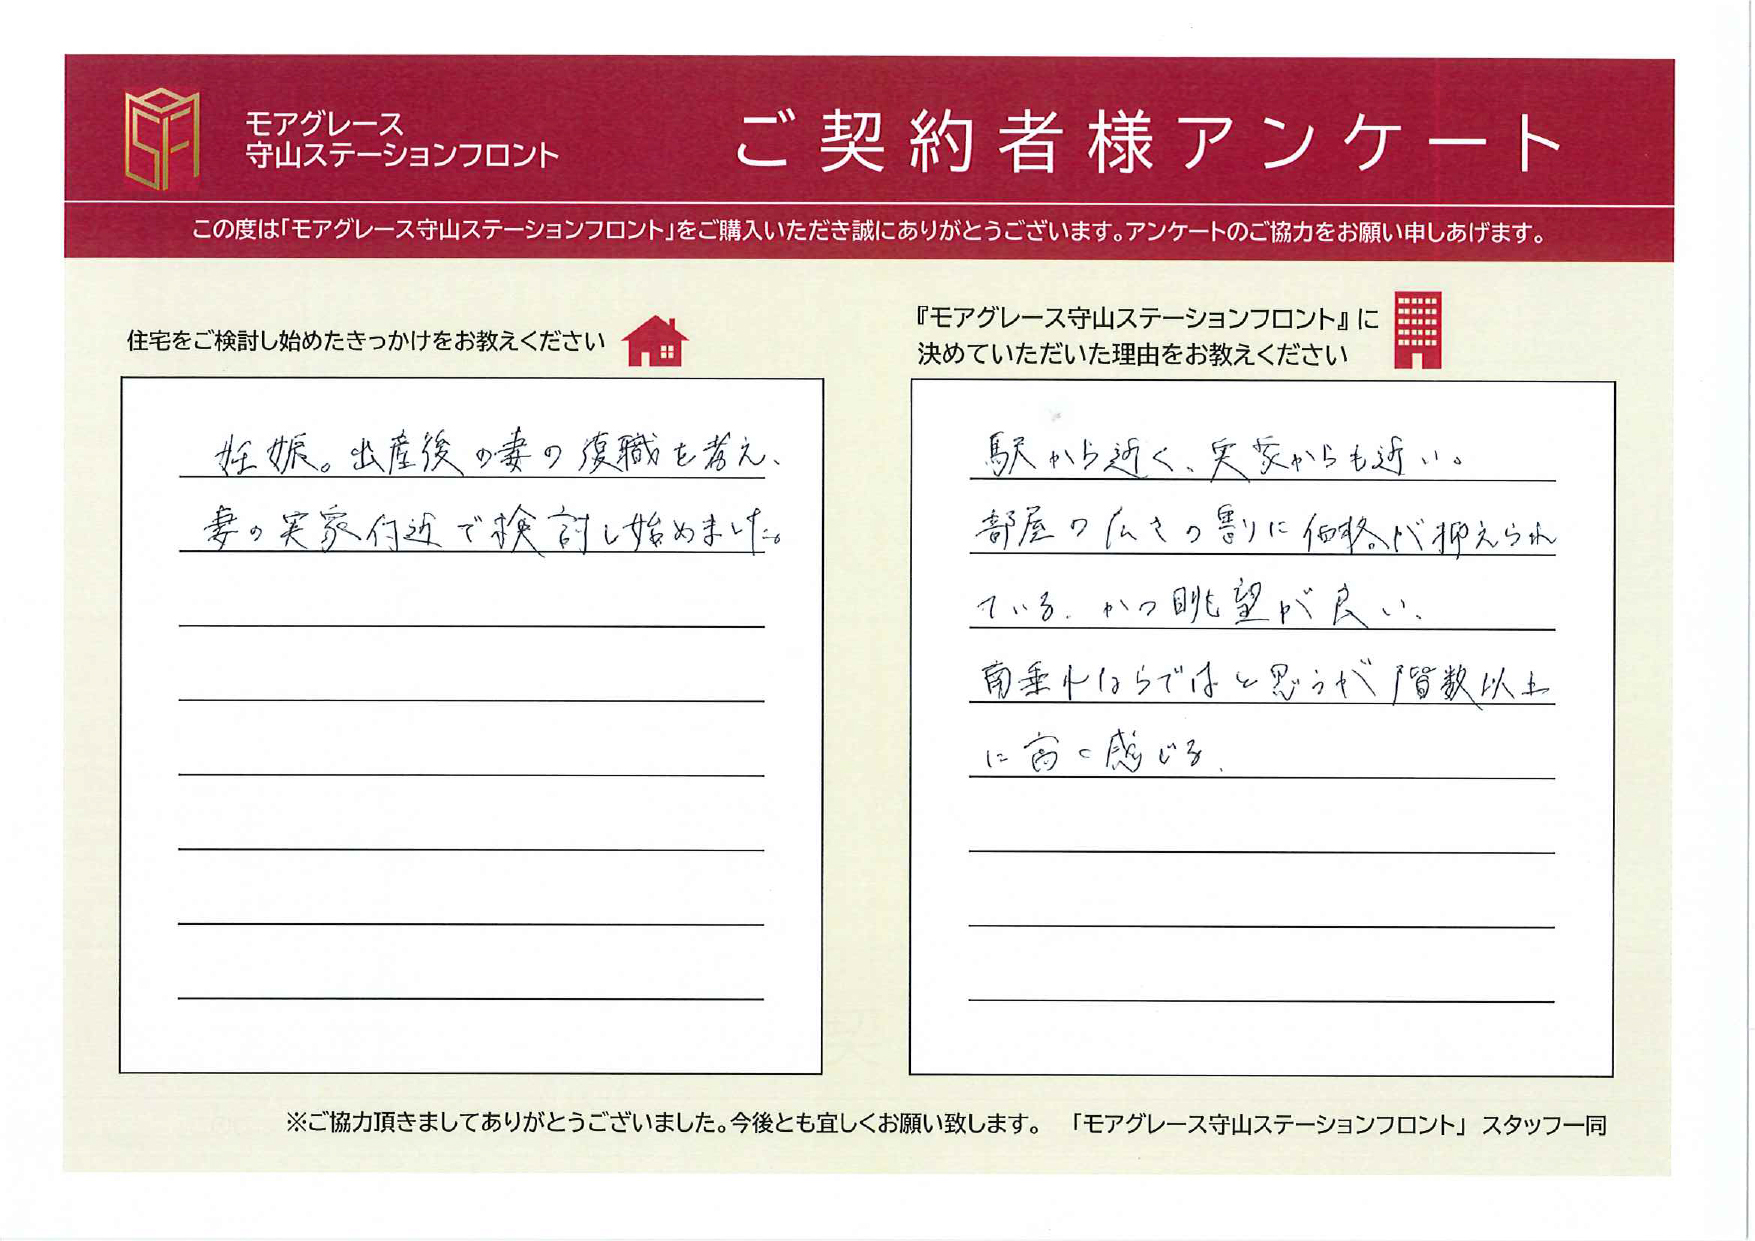 モアグレース
守山ステーションフロント
ご契約者様アンケート
この度は「モアグレース守山ステーションフロント」をご購入いただき誠にありがとうございます。アンケートのご協力をお願い申しあげます。
住宅をご検討し始めたきっかけをお教えください
妊娠。出産後の妻の復職を考え、
妻の実家付近で検討し始めました。
『モアグレース守山ステーションフロント』に
決めていただいた理由をお教えください
駅から近く、実家からも近い。
部屋の広さの割りに価格が抑えられ
ている。かつ眺望が良い、
南垂れならではと思うが階数以上
に高く感じる。
※ご協力頂きましてありがとうございました。今後とも宜しくお願い致します。 「モアグレース守山ステーションフロント」 スタッフ一同